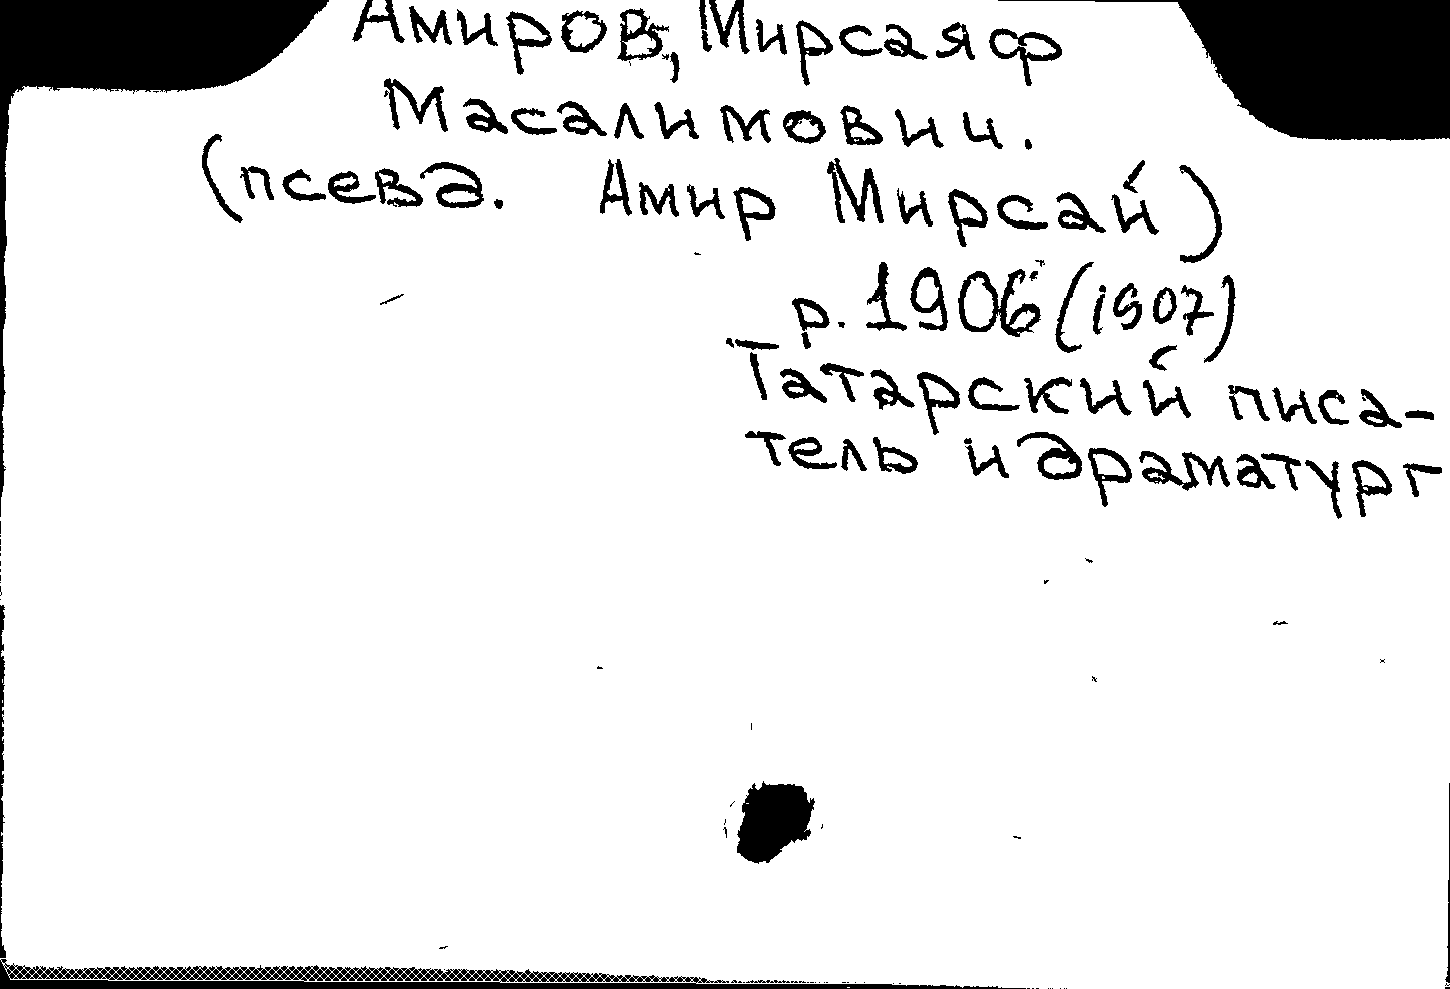 Амиров, Мирсаяф
Масалимович.
(псевд. Амир Мирсай)
р. 1906 (1907)
Татарский писа-
тель и драматург